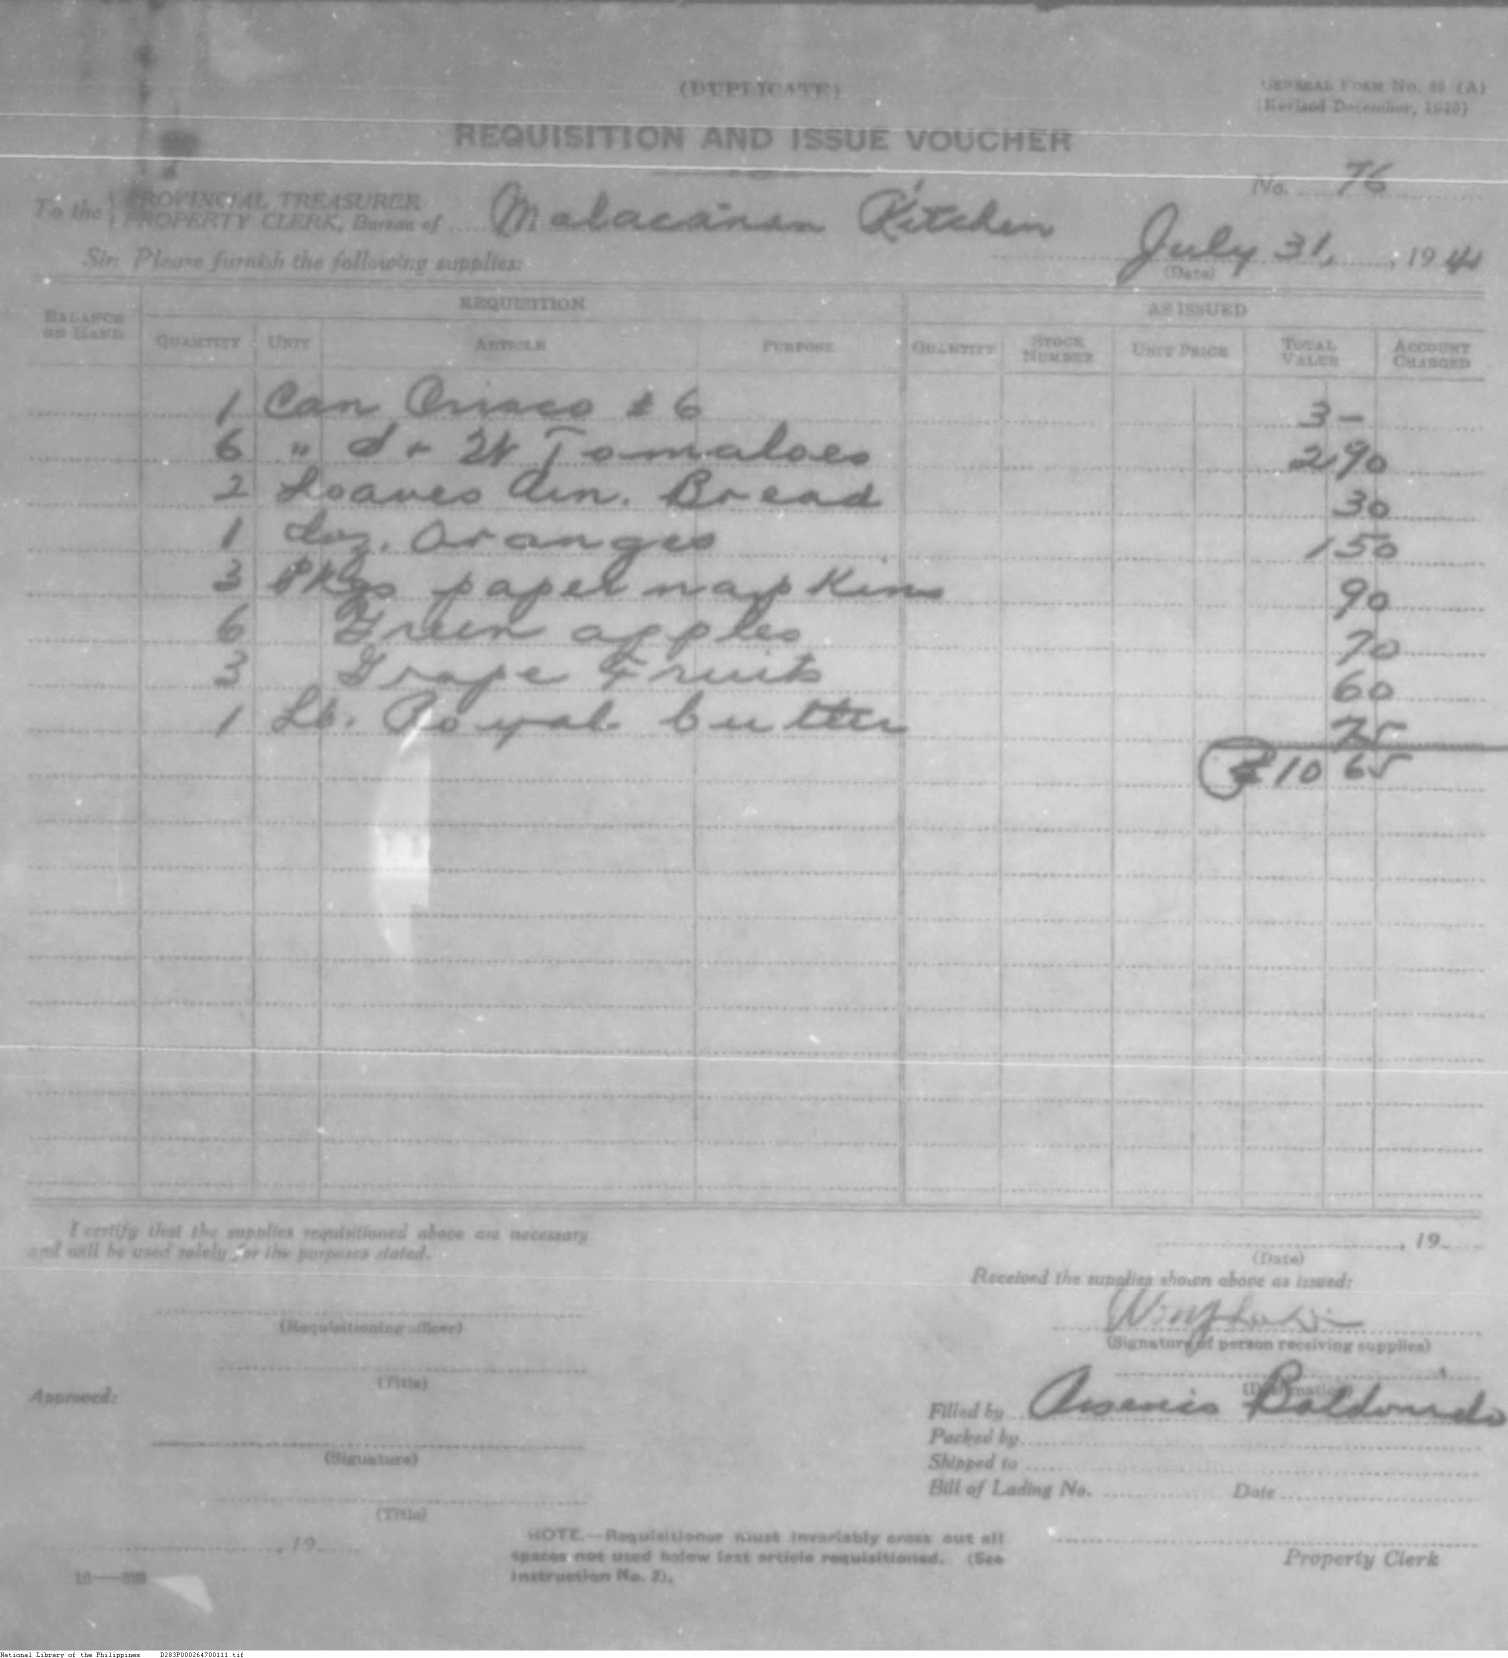 (DUPLICATE)
GENERAL FORM No. (A)
(Revised December, 1940)
REQUISITION AND ISSUE VOUCHER
No. 76
To the PROVINCIAL TREASURER
PROPERTY CLERK, Bureau of Malacañan Kitchen
July 31, 1941
(Date)
Sir: Please furnish the following supplies:
BALANCE ON HAND REQUISITION AS ISSUED
QUANTITY UNIT ARTICLE PURPOSE QUANTITY STOCK NUMBER UNIT PRICE TOTAL VALUE ACCOUNT CHARGED
1 Can Crisco # 6 3 –
6 " Tomatoes 2 90
2 Loaves Am. Bread 30
1 doz. Oranges 1 50
3 Pkgs paper napkins 90
6 Green apples 70
3 Grape Fruits 60
1 Lb. Royal butter 75
₱10 65
I certify that the supplies requisitioned above are necessary
and will be used solely for the purposes stated.
, 19
(Date)
Received the supplies shown above as issued:
(Requisitioning officer)
(Signature of person receiving supplies)
(Title)
(Designation)
Approved:
Filled by Arsenio Baldomedo
Packed by
(Signature)
Shipped to
Bill of Lading No. Date
(Title)
, 19
NOTE.—Requisitioner must invariably cross out all
spaces not used below last article requisitioned. (See
Instruction No. 2).
Property Clerk
National Library of the Philippines D283P000264700111.tif